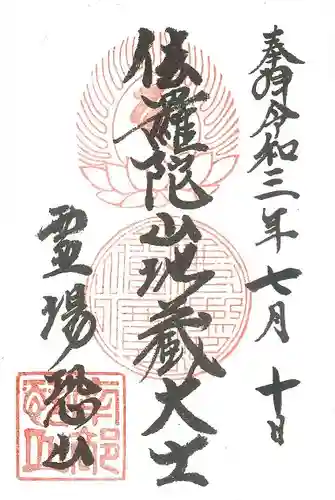 奉拝 令和三年七月十日
伽羅陀山地蔵大士
霊場 恐山